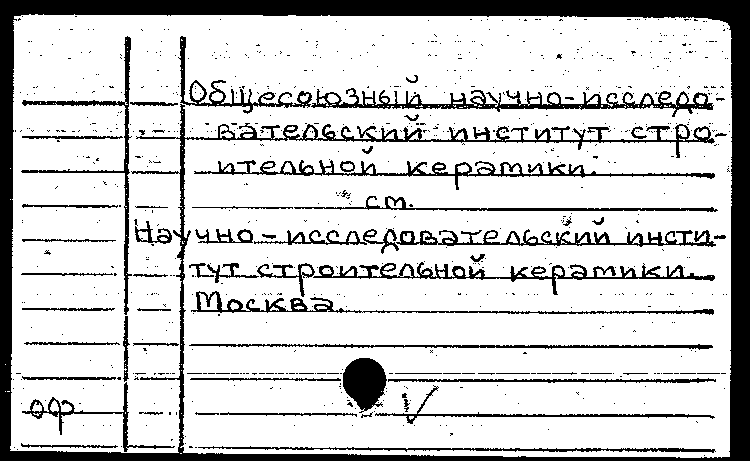 Общесоюзный научно-исследо-
вательский институт стро-
ительной керамики.
см.
Научно-исследовательский инсти-
тут строительной керамики.
Москва.
оф